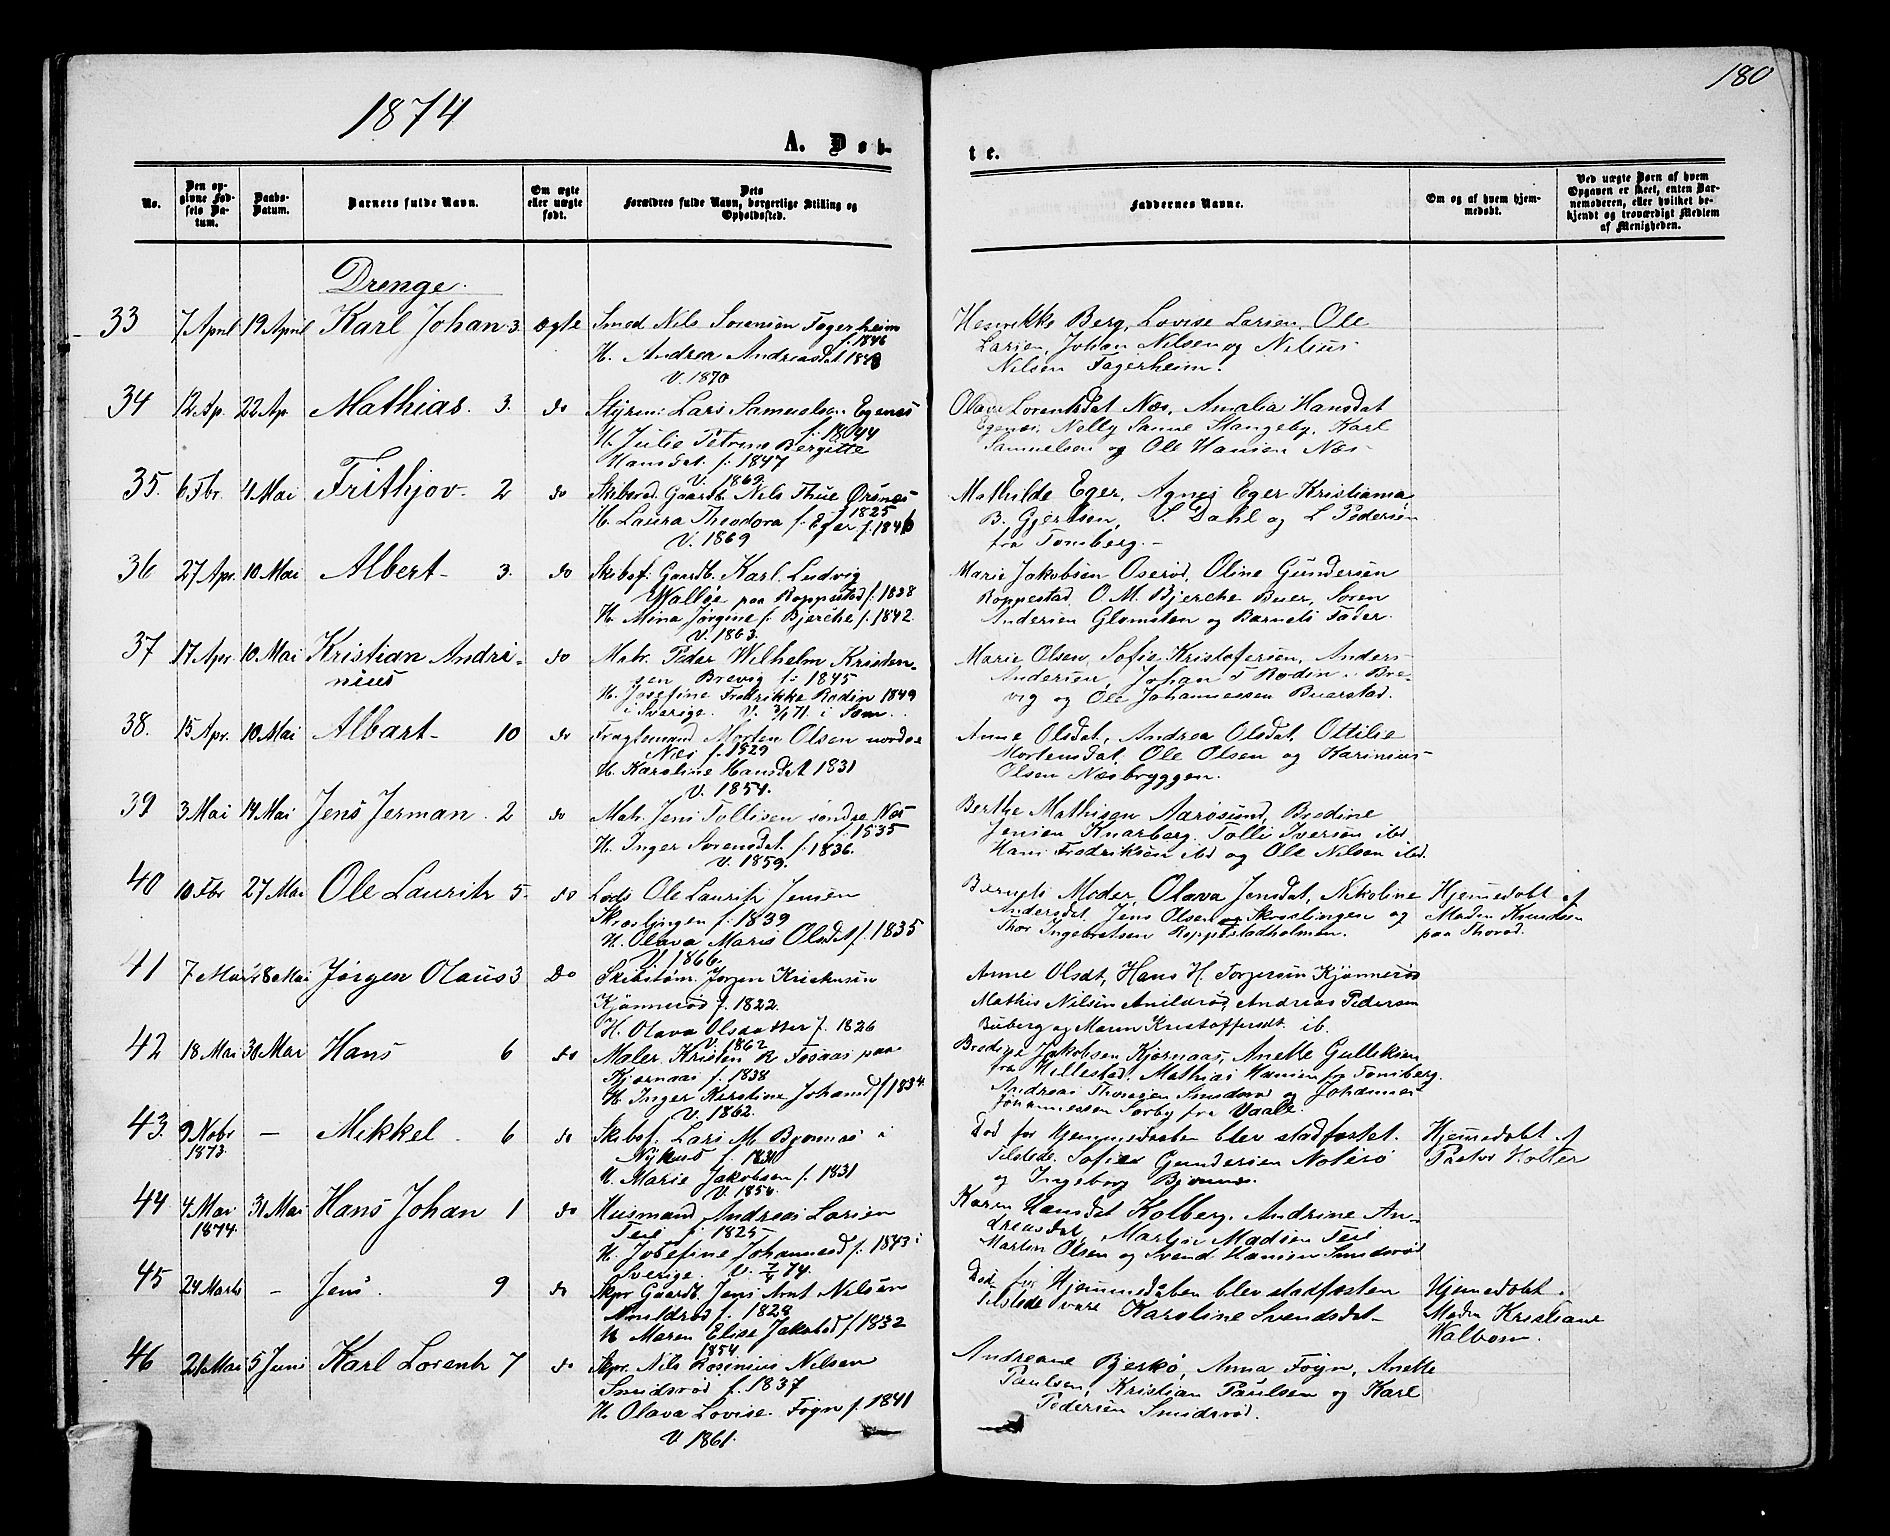 1874
180
A. Døb-
te.
No.
Den op-
givne Fød-
sels Da-
tum.
Daabs-
Datum.
Barnets fulde Navn.
Om ægte
eller uægte
født.
Dets
Forældres fulde Navn, borgerlige Stilling og
Opholdssted.
Faddernes Navne.
Om og af hvem hjem-
medøbt.
Ved uægte Børn af hvem
Opgaven er skeet, enten Bar-
nemoderen, eller hvilket be-
kjendt og troværdigt Medlem
af Menigheden.
Drenge.
33 7 April 19 April Karl Johan 3. ægte Smed Nils Sørensen Fagerheim
f. 1846
H. Andrea Andreasdat 1848
V. 1870
Henrikke Berg, Lovise Larsen, Ole
Larsen, Johan Nilsen og Nilius
Nilsen Fagerheim.
34 12 Ap. 22 Ap. Mathias. 3. do Styrm: Lars Samuelsen Egenes
f. 1844
H. Julie Petrine Bergitte
Hansdat. f. 1847
V. 1869
Olava Lorentsdat Næs, Amalia Hansdat
Egenæs, Nelly Sanne Stangeby, Karl
Samuelsen og Ole Hansen Næs
35. 6 Fbr. 4 Mai Frithjov. 2 do Skibsrd. Gaardb. Nils Thue Ørsnes
f. 1825
H. Laura Theodora f. Eger f. 1846
V. 1869
Mathilde Eger, Agnes Eger Kristiania
B. Gjertsen, S. Dahl og L Pedersen
fra Tønsberg.-
36 27 Apr. 10 Mai Albert- 3. do Skibsf. Gaardb. Karl Ludvig
Walløe paa Roppestad f. 1828
H. Mina Jørgine f. Bjerche f. 1842
V. 1863.
Marie Jakobsen Oserød, Oline Gundersen
Roppestad, O. M. Bjerche Buer, Søren
Andersen Glomsten og Barnets Fader.
37 17 Apr. 10 Mai Kristian Andri-
nius
do Matr. Peder Wilhelm Kristen-
sen Brevig f. 1845
H. Josefine Fredrikke Rodin 1849
i Sverige. V. 3/1 71. i Sem
Marie Olsen, Sofie Kristofersen, Anders
Andersen, Johan F Rodin, Bre-
vig og Ole Johannessen Buerstad.
38. 15 Apr. 10 Mai Albart- 10 do Fragtemand Morten Olsen nordre
Næs f. 1829
H. Karoline Hansdat 1831
V. 1854.
Anne Olsdat, Andrea Olsdat, Ottilie
Mortensdat, Ole Olsen og Karinius
Olsen Næsbryggen.
39 3 Mai 14 Mai Jens Jerman. 2 do Matr. Jens Tollisen søndre Næs
f. 1835
H. Inger Sørensdat f. 1836.
V. 1859.
Berthe Mathisen Aarøsund, Bredine
Jensen Knarberg, Tolli Iversen ibd
Hans Fredriksen ibd og Ole Nilsen ibd.
40 10 Fbr 27 Mai Ole Lauritz 5. do Lods Ole Lauritz Jensen
Skröslingen f. 1839
H. Olava Marie Olsdat f. 1835
V. 1866.
Barnets Moder, Olava Jensdat, Nikoline
Andersdat, Jens Olsen Skröslingen og
Thor Ingebretsen Roppestadholmen.
Hjemmedøbt af
Maden Knudsen
paa Thorød.
41 7 Mai 28 Mai Jørgen Olaus 3 Do Skibstøm. Jørgen Kristensen
Kjønnerød f. 1822.
H. Olava Olsdatter f. 1826
V. 1862
Anne Olsdt, Hans H. Torgersen Kjønnerød
Mathis Nilsen Anildrød, Andreas Pedersen
Buberg og Maren Kristoffersdt. ib.
42 18 Mai 30 Mai Hans 6 do Maler Kristen R Fosaas paa
Kjærnaas f. 1838
H. Inger Kirstine Johansd f 1834.
V. 1862.
Bredine Jakobsen Kjærnaas, Anette Gulliksen
fra Hillestad, Mathias Hansen fra Tønsberg.
Andreas Thomesen Smidsrød og Johannes
Johannessen Sørby fra Vaale.
43. 9 Nobr
1873.
- Mikkel. 6 do Skibsf. Lars M. Bjønnes i
Nykus f. 1831
H. Marie Jakobsen f. 1831
V. 1854.
Død før Hjemmedaaben blev stadfæstet.
Tilstede: Sofie Gundersen Nøterø
og Ingeborg Bjønnes.
Hjemmedøbt af
Pastor Holter
44 4 Mai
1874.
31 Mai Hans Johan 1 do Husmand Andreas Larsen
Teie f. 1825
H. Josefine Johannesd f. 1843 i
Sverige. V. 7/4 74.
Karen Hansdat Kolberg, Andrine An-
dreasdat, Martin Madsen Teie
Martin Olsen og Svend Hansen Smidsrød
45 24 Marts - Jens. 9 do Skpr Gaardb. Jens Arnt Nilsen
Anildrød f. 1828
H Maren Elise Jakobsd f 1832
1854.
Død før Hjemmedaaben blev stadfæsten
Tilstede vare Karoline Svendsdat-
Hjemmedøbt.
Maden Kristiane
Walbom.
46 21 Mai 5 Juni Karl Lorentz 7 do Skpr. Nils Rosinius Nilsen
Smidsrød f. 1837
H. Olava Lovise Føyn f. 1841
V. 1861.
Andreane Bjerkø, Anna Føyn, Anette
Paulsen, Kristian Paulsen og Karl
Pedersen Smidsrød.